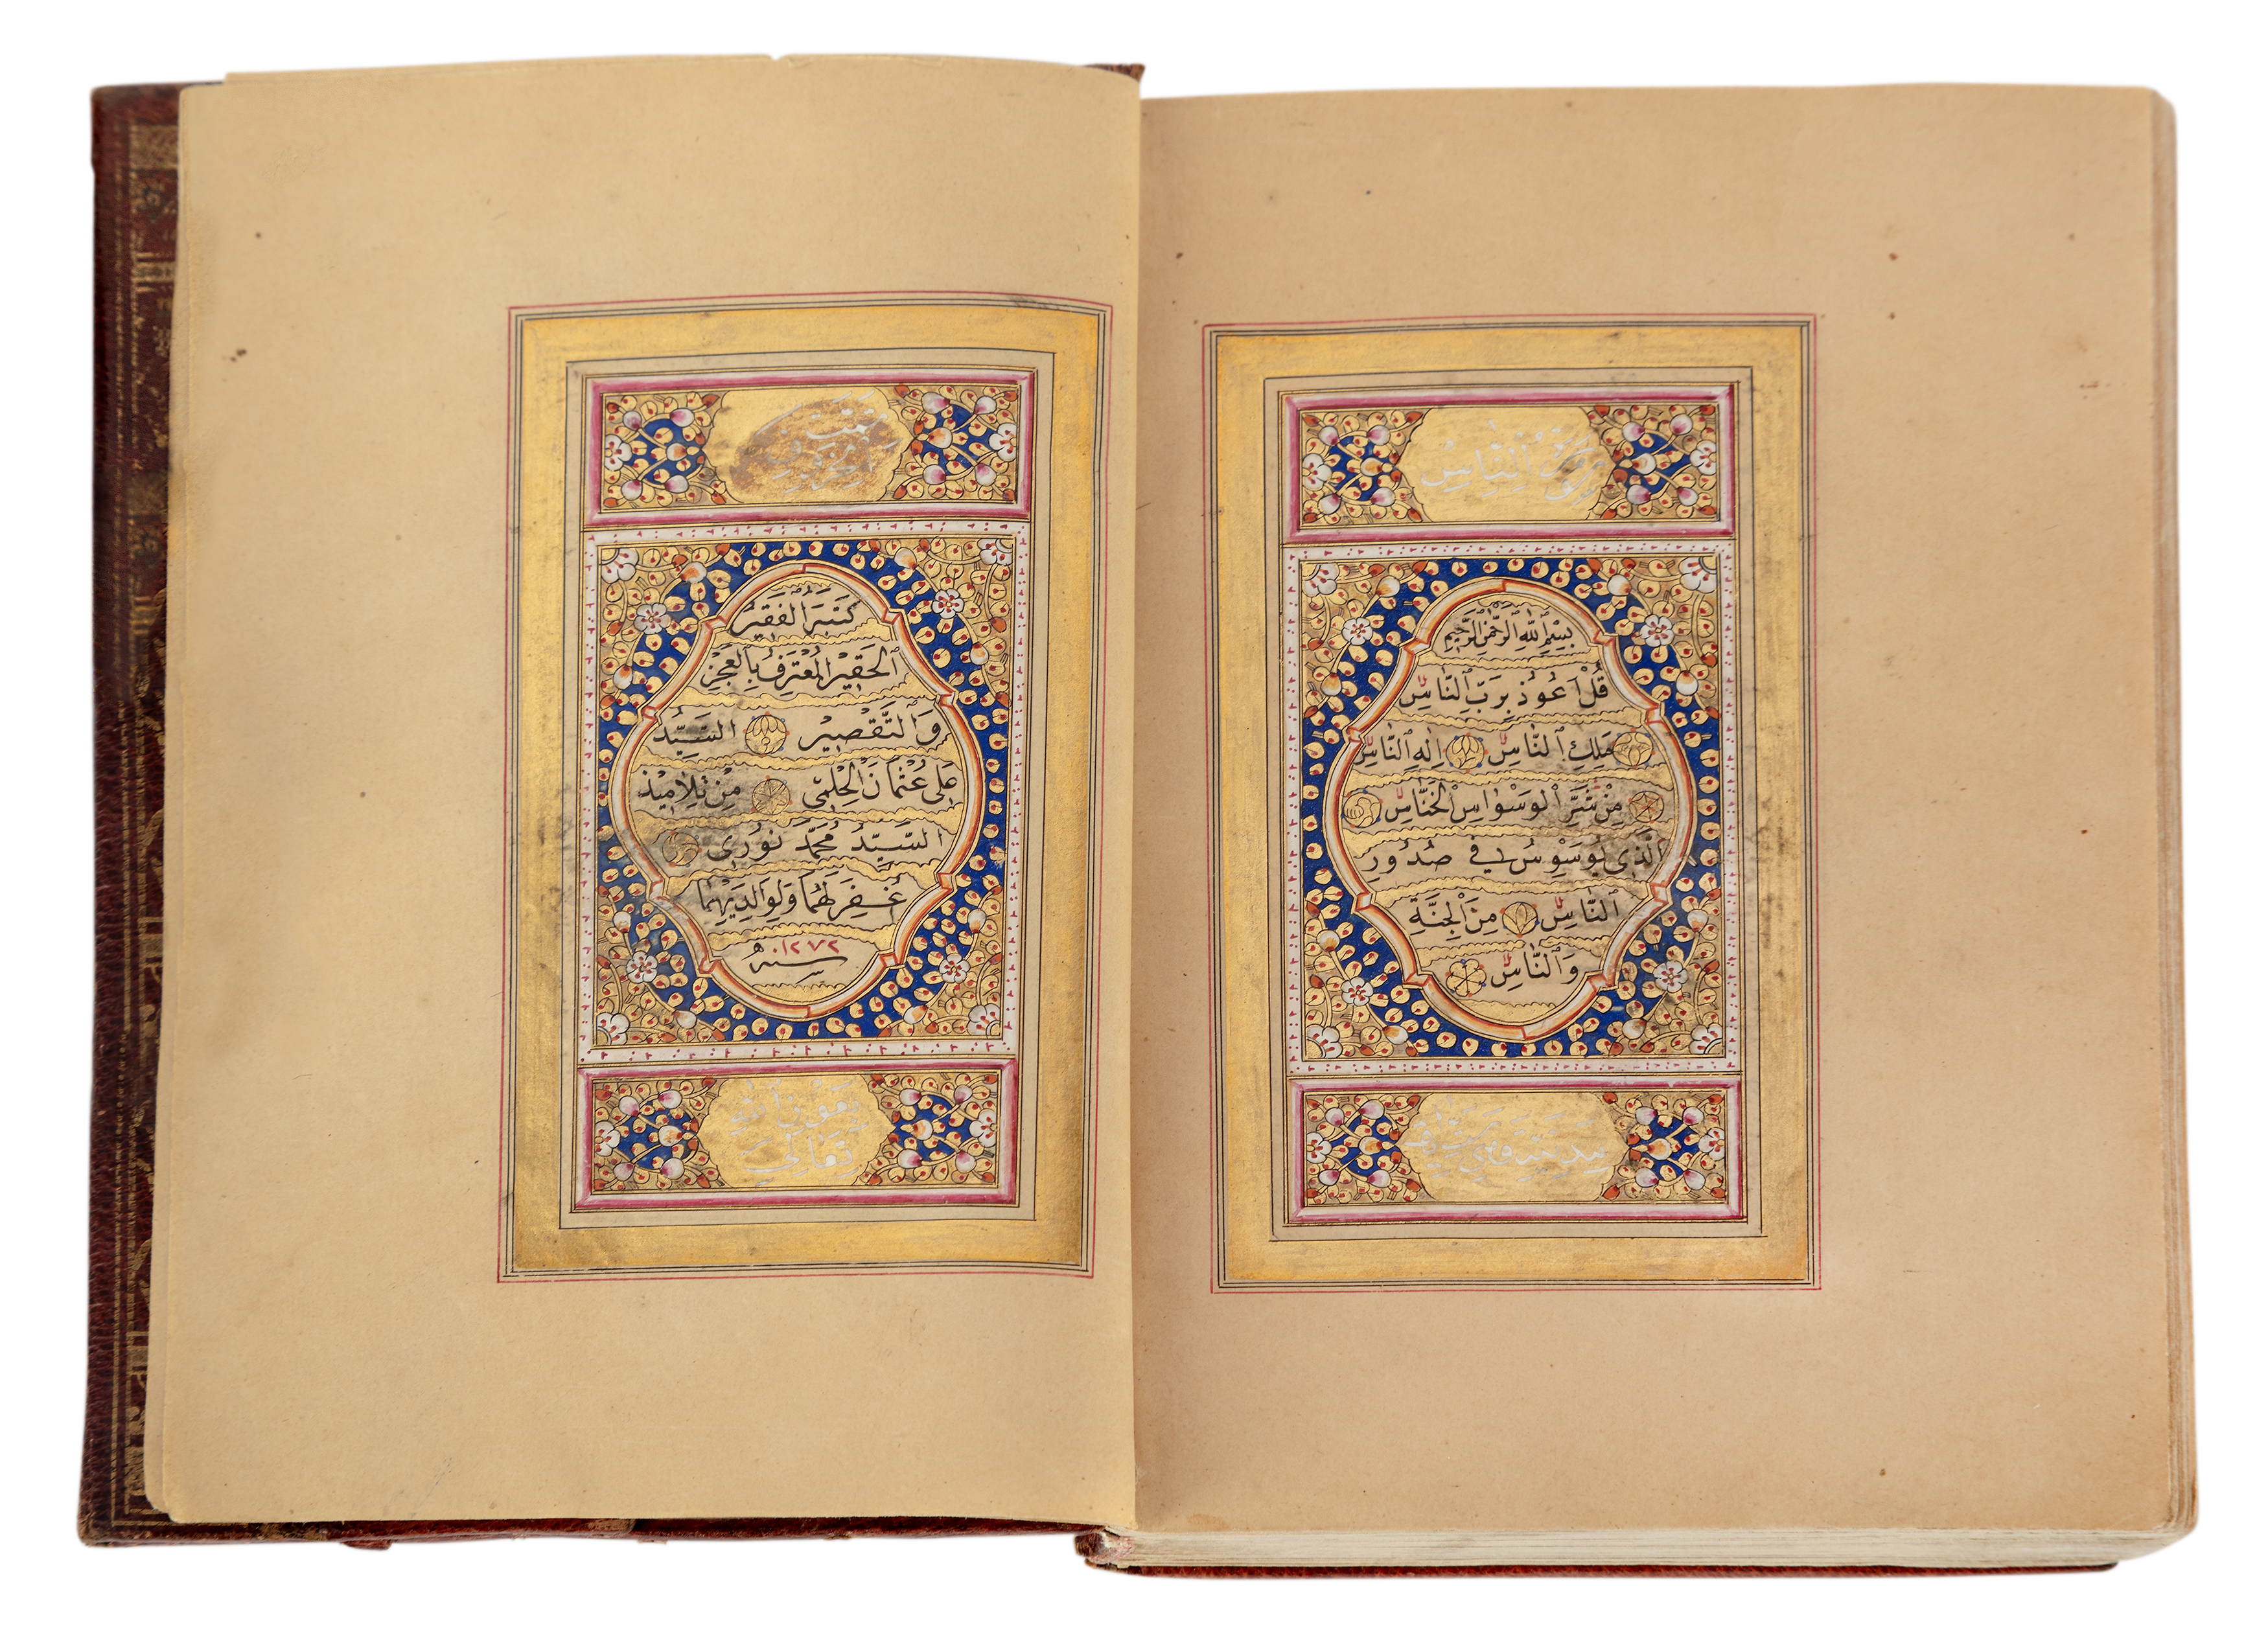 سورة الناس
بِسْمِ ٱللّٰهِ ٱلرَّحْمٰنِ ٱلرَّحِيمِ
قُلْ اَعُوذُ بِرَبِّ ٱلنَّاسِ
مَلِكِ ٱلنَّاسِ اِلٰهِ ٱلنَّاسِ
مِنْ شَرِّ ٱلْوَسْوَاسِ ٱلْخَنَّاسِ
ٱلَّذِي يُوَسْوِسُ فِي صُدُورِ
ٱلنَّاسِ مِنَ ٱلْجِنَّةِ
وَٱلنَّاسِ
كَتَبَهُ ٱلْفَقِيرُ
ٱلْحَقِيرُ ٱلْمُعْتَرِفُ بِالْعَجْزِ
وَٱلتَّقْصِيرِ السَّيِّدُ
عَلِي عُثْمَانَ ٱلْحِلْمِي مِنْ تَلَامِيذِ
السَّيِّدُ مُحَمَّدْ نُورِي
غُفِرَ لَهُمَا وَلِوَالِدَيْهِمَا
سنه ١٢٧٢
بعون الله
تعالى